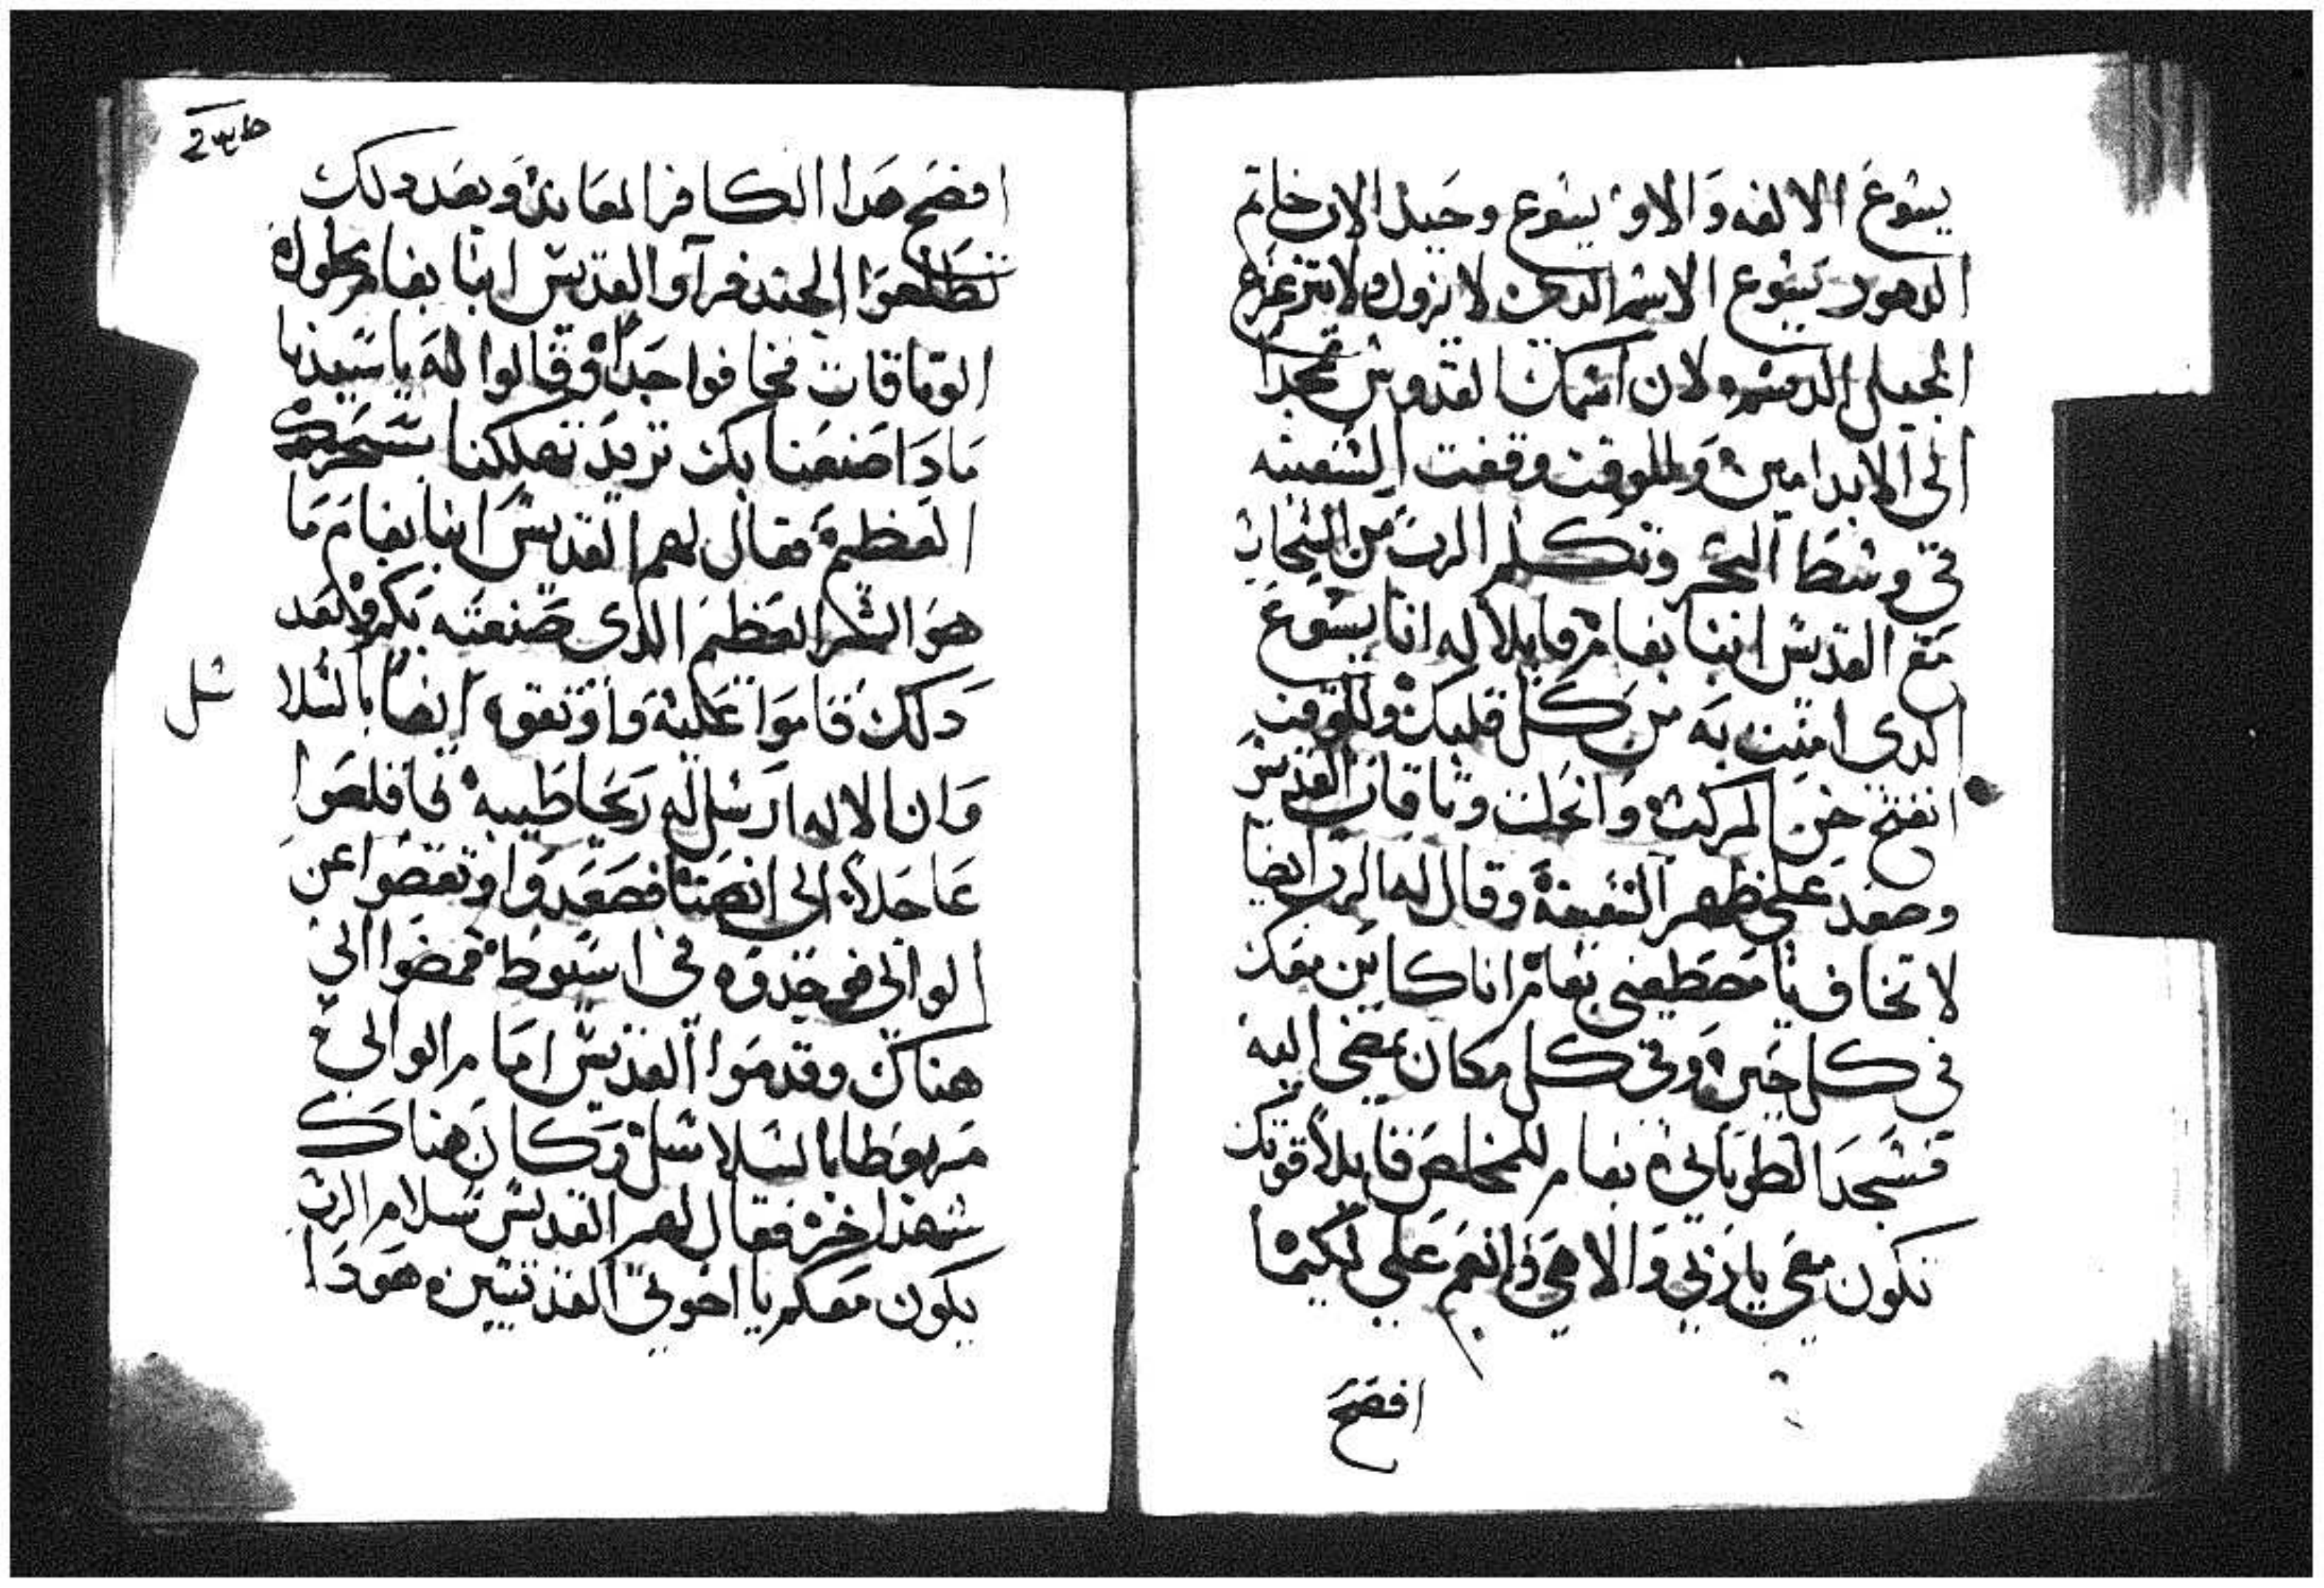 يسوع الالفه والاو يسوع وجيل الان خاتم
الدهور يسوع الاسم الدى لا يزول ولا يتزعزع
لان اسمك القدوس تمجد
الى الابد امين وللوقت وقفت السفينه
فى وسط البحر وتكلم الرب من السحاب
مع القديس انبا بفام قايلا له انا يسوع
الدى امنت به من كل قلبك وللوقت
انفتح خن المركب وانحلت وثاقات القديس
وصعد على ظهر السفينة وقال له الرب ايضا
لا تخاف يا مصطفى بفام انا كاين معك
فى كل حين وفى كل مكان تمضى اليه
فسجد الطوباني بفام للمخلص قايلا قوتك
تكون معى يا ربى والاهى وانعم على لكيما
افضح
افضح هدا الكافر المعاند وبعد دلك
الجند فراوا القديس انبا بفام محلول
الوتاقات فخافوا جدا وقالوا له يا سيدنا
مادا صنعنا بك تريد تهلكنا بسحرك
العظيم فقال لهم القديس انبا بفام ما
هو الشر العظيم الدى صنعته بكم وبعد
دلك قاموا عليه واوتقوه ايضا بالسلا
سل
وان الاله ارسل له ريحا طيبه فاقلعوا
عاجلا الى انصنا فصعدوا وتفحصوا عن
الوالى فوجدوه فى اسيوط فمضوا الى
هناك وقدموا القديس امام الوالى
مربوطا بالسلاسل وكان هناك
شهدا اخر فقال لهم القديس سلام الرب
يكون معكم يا اخوتى القديسين هودا